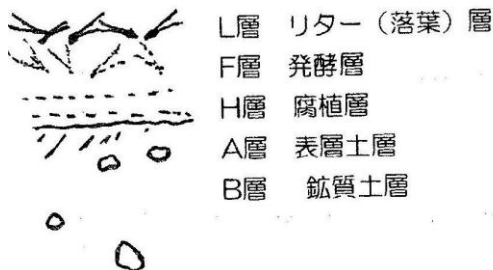 L層 リター（落葉）層
F層 発酵層
H層 腐植層
A層 表層土層
B層 鉱質土層